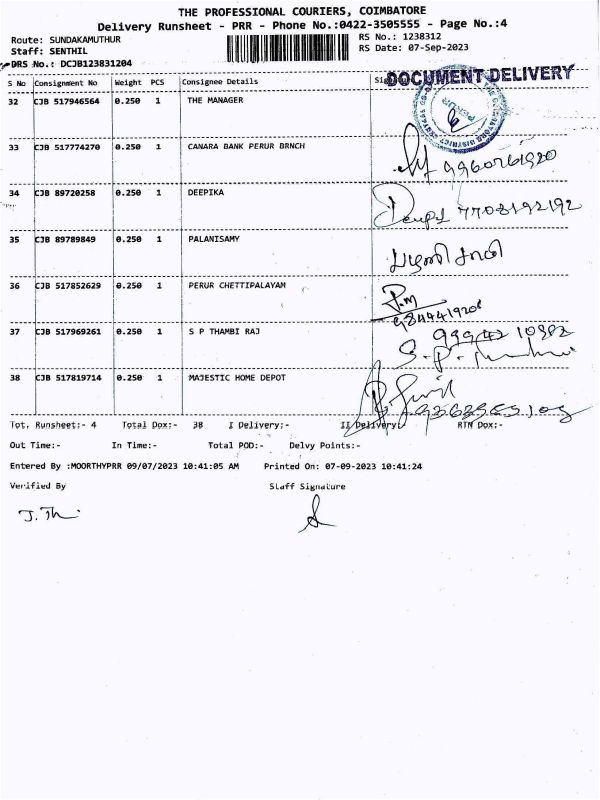 THE PROFESSIONAL COURIERS, COIMBATORE
Delivery Runsheet - PRR - Phone No.:0422-3505555 - Page No.:4
Route: SUNDAKAMUTHUR RS No.: 1238312
Staff: SENTHIL RS Date: 07-Sep-2023
DRS No.: DCJB123831204
DOCUMENT DELIVERY
S No Consignment No Weight PCS Consignee Details
32 CJB 517946564 0.250 1 THE MANAGER
PERUR
33 CJB 517774270 0.250 1 CANARA BANK PERUR BRNCH
9960761920
34 CJB 89720258 0.250 1 DEEPIKA
7708192192
35 CJB 89789849 0.250 1 PALANISAMY
பழனிசாமி
36 CJB 517852629 0.250 1 PERUR CHETTIPALAYAM
37 CJB 517969261 0.250 1 S P THAMBI RAJ
38 CJB 517819714 0.250 1 MAJESTIC HOME DEPOT
Tot. Runsheet:- 4 Total Dox:- 38 I Delivery:- II Delivery:- RTN Dox:-
Out Time:- In Time:- Total POD:- Delvy Points:-
Entered By :MOORTHYPRR 09/07/2023 10:41:05 AM Printed On: 07-09-2023 10:41:24
Verified By Staff Signature